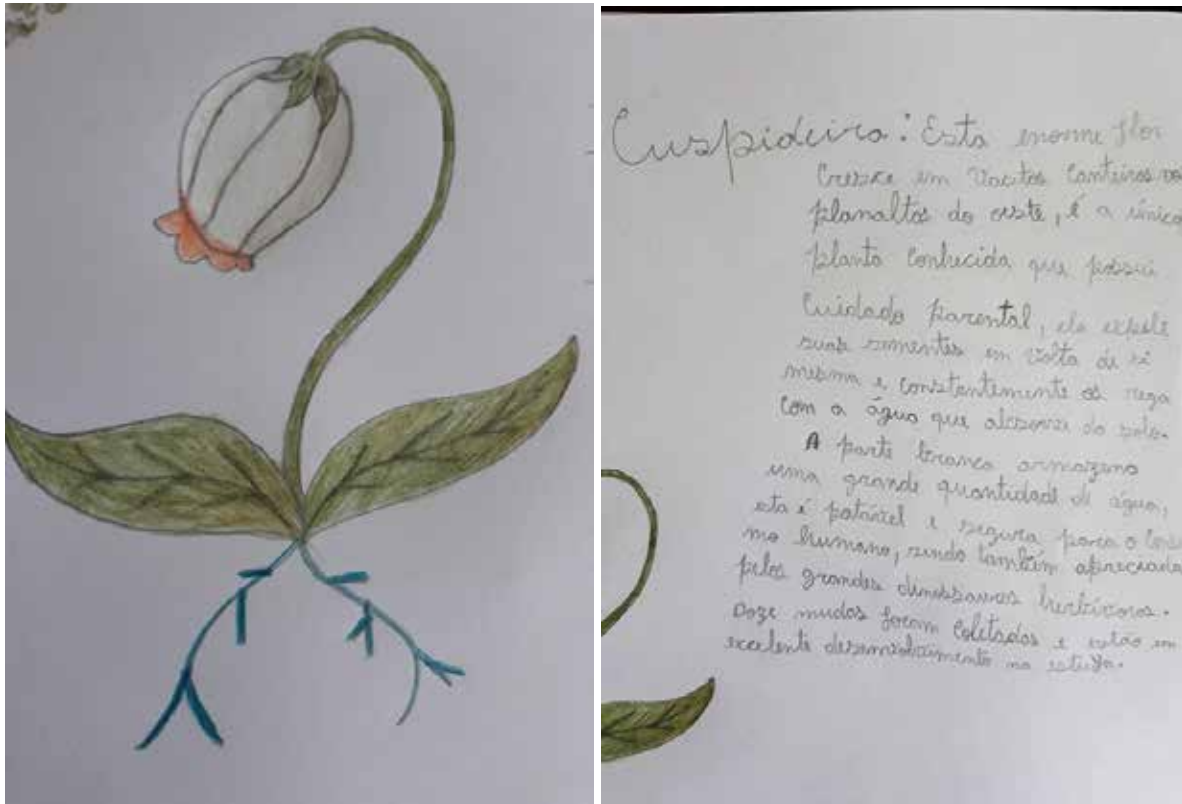 Cuspideira: Esta enorme flor
Cresce em Vastos Canteiros
planaltos do oeste, é a única
planta Conhecida que possui
Cuidado parental, ela expele
suas sementes em volta de si
mesma e constantemente as rega
Com a água que absorve do solo.
A parte branca armazena
uma grande quantidade de água,
esta é potável e segura para o
mo humano, sendo também apreciada
pelos grandes dinossauros herbívoros.
Doze mudas foram Coletadas e estão em
excelente desenvolvimento na estufa.